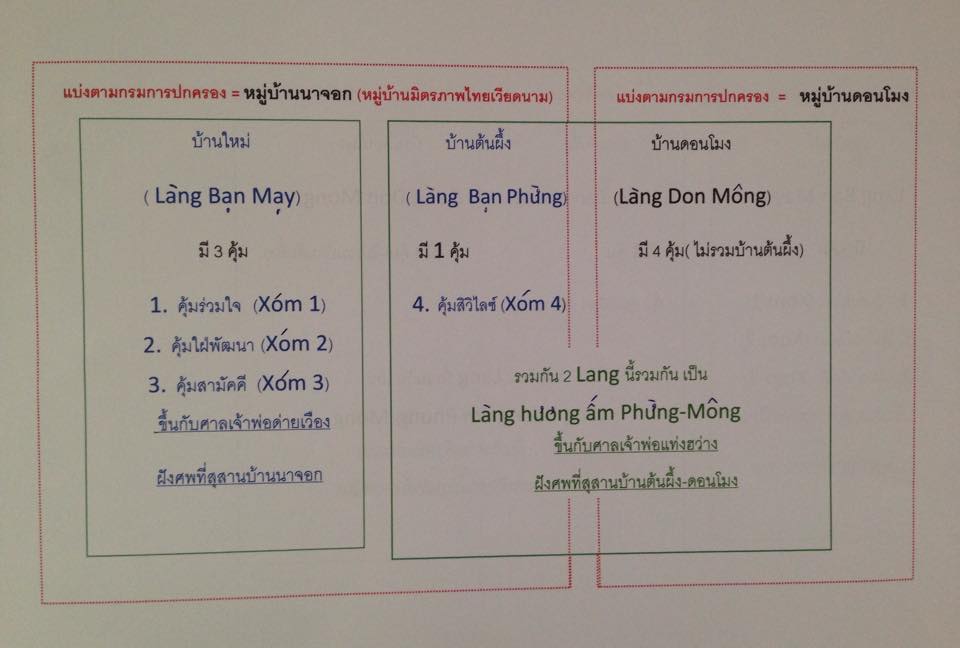 แบ่งตามกรมการปกครอง = หมู่บ้านนาจอก (หมู่บ้านมิตรภาพไทยเวียดนาม)
แบ่งตามกรมการปกครอง = หมู่บ้านดอนโมง
บ้านใหม่
( Làng Bạn Mạy)
มี 3 คุ้ม
1. คุ้มร่วมใจ (Xóm 1)
2. คุ้มใฝ่พัฒนา (Xóm 2)
3. คุ้มสามัคคี (Xóm 3)
ขึ้นกับศาลเจ้าพ่อด่ายเวือง
ฝังศพที่สุสานบ้านนาจอก
บ้านต้นผึ้ง
( Làng Bạn Phừng)
มี 1 คุ้ม
4. คุ้มสิวิไลซ์ (Xóm 4)
บ้านดอนโมง
(Làng Don Mông)
มี 4 คุ้ม( ไม่รวมบ้านต้นผึ้ง)
รวมกัน 2 Lang นี้รวมกัน เป็น
Làng hương ấm Phừng-Mông
ขึ้นกับศาลเจ้าพ่อแท่งฮว่าง
ฝังศพที่สุสานบ้านต้นผึ้ง-ดอนโมง